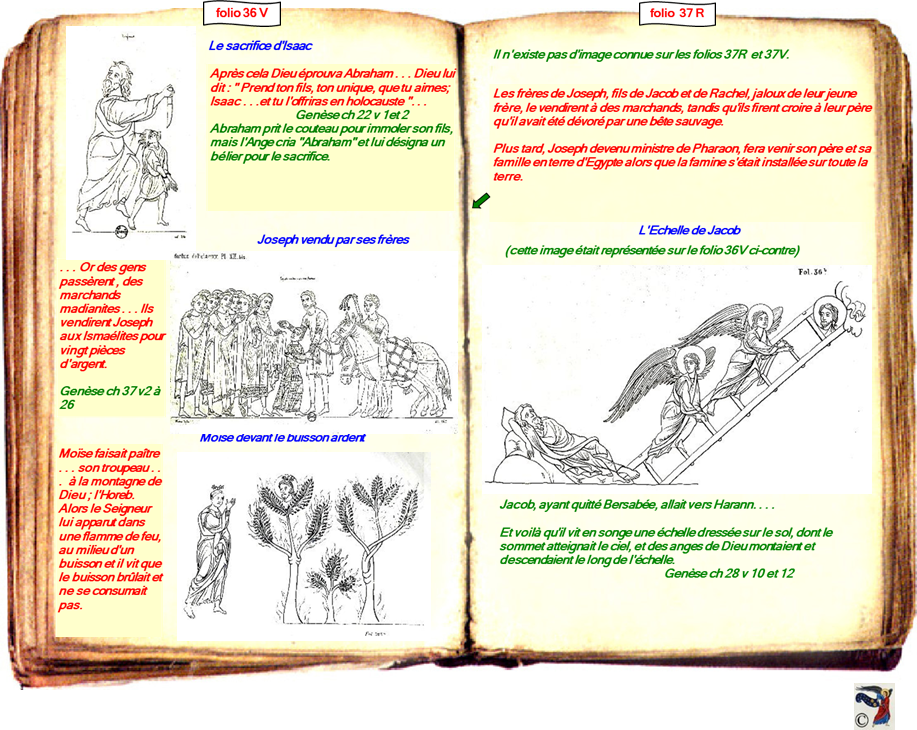 folio 36 V
Le sacrifice d'Isaac
Après cela Dieu éprouva Abraham . . . Dieu lui
dit : " Prend ton fils, ton unique, que tu aimes;
Isaac . . .et tu l'offriras en holocauste ". . .
Genèse ch 22 v 1et 2
Abraham prit le couteau pour immoler son fils,
mais l'Ange cria "Abraham" et lui désigna un
bélier pour le sacrifice.
Joseph vendu par ses frères
. . . Or des gens
passèrent , des
marchands
madianites . . . Ils
vendirent Joseph
aux Ismaélites pour
vingt pièces
d'argent.
Genèse ch 37 v2 à
26
Moïse devant le buisson ardent
Moïse faisait paître
. . . son troupeau . .
. à la montagne de
Dieu ; l'Horeb.
Alors le Seigneur
lui apparut dans
une flamme de feu,
au milieu d'un
buisson et il vit que
le buisson brûlait et
ne se consumait
pas.
folio 37 R
Il n'existe pas d'image connue sur les folios 37R et 37V.
Les frères de Joseph, fils de Jacob et de Rachel, jaloux de leur jeune
frère, le vendirent à des marchands, tandis qu'ils firent croire à leur père
qu'il avait été dévoré par une bête sauvage.
Plus tard, Joseph devenu ministre de Pharaon, fera venir son père et sa
famille en terre d'Egypte alors que la famine s'était installée sur toute la
terre.
L'Echelle de Jacob
(cette image était représentée sur le folio 36V ci-contre)
Fol. 36
Jacob, ayant quitté Bersabée, allait vers Harann. . . .
Et voilà qu'il vit en songe une échelle dressée sur le sol, dont le
sommet atteignait le ciel, et des anges de Dieu montaient et
descendaient le long de l'échelle.
Genèse ch 28 v 10 et 12
©